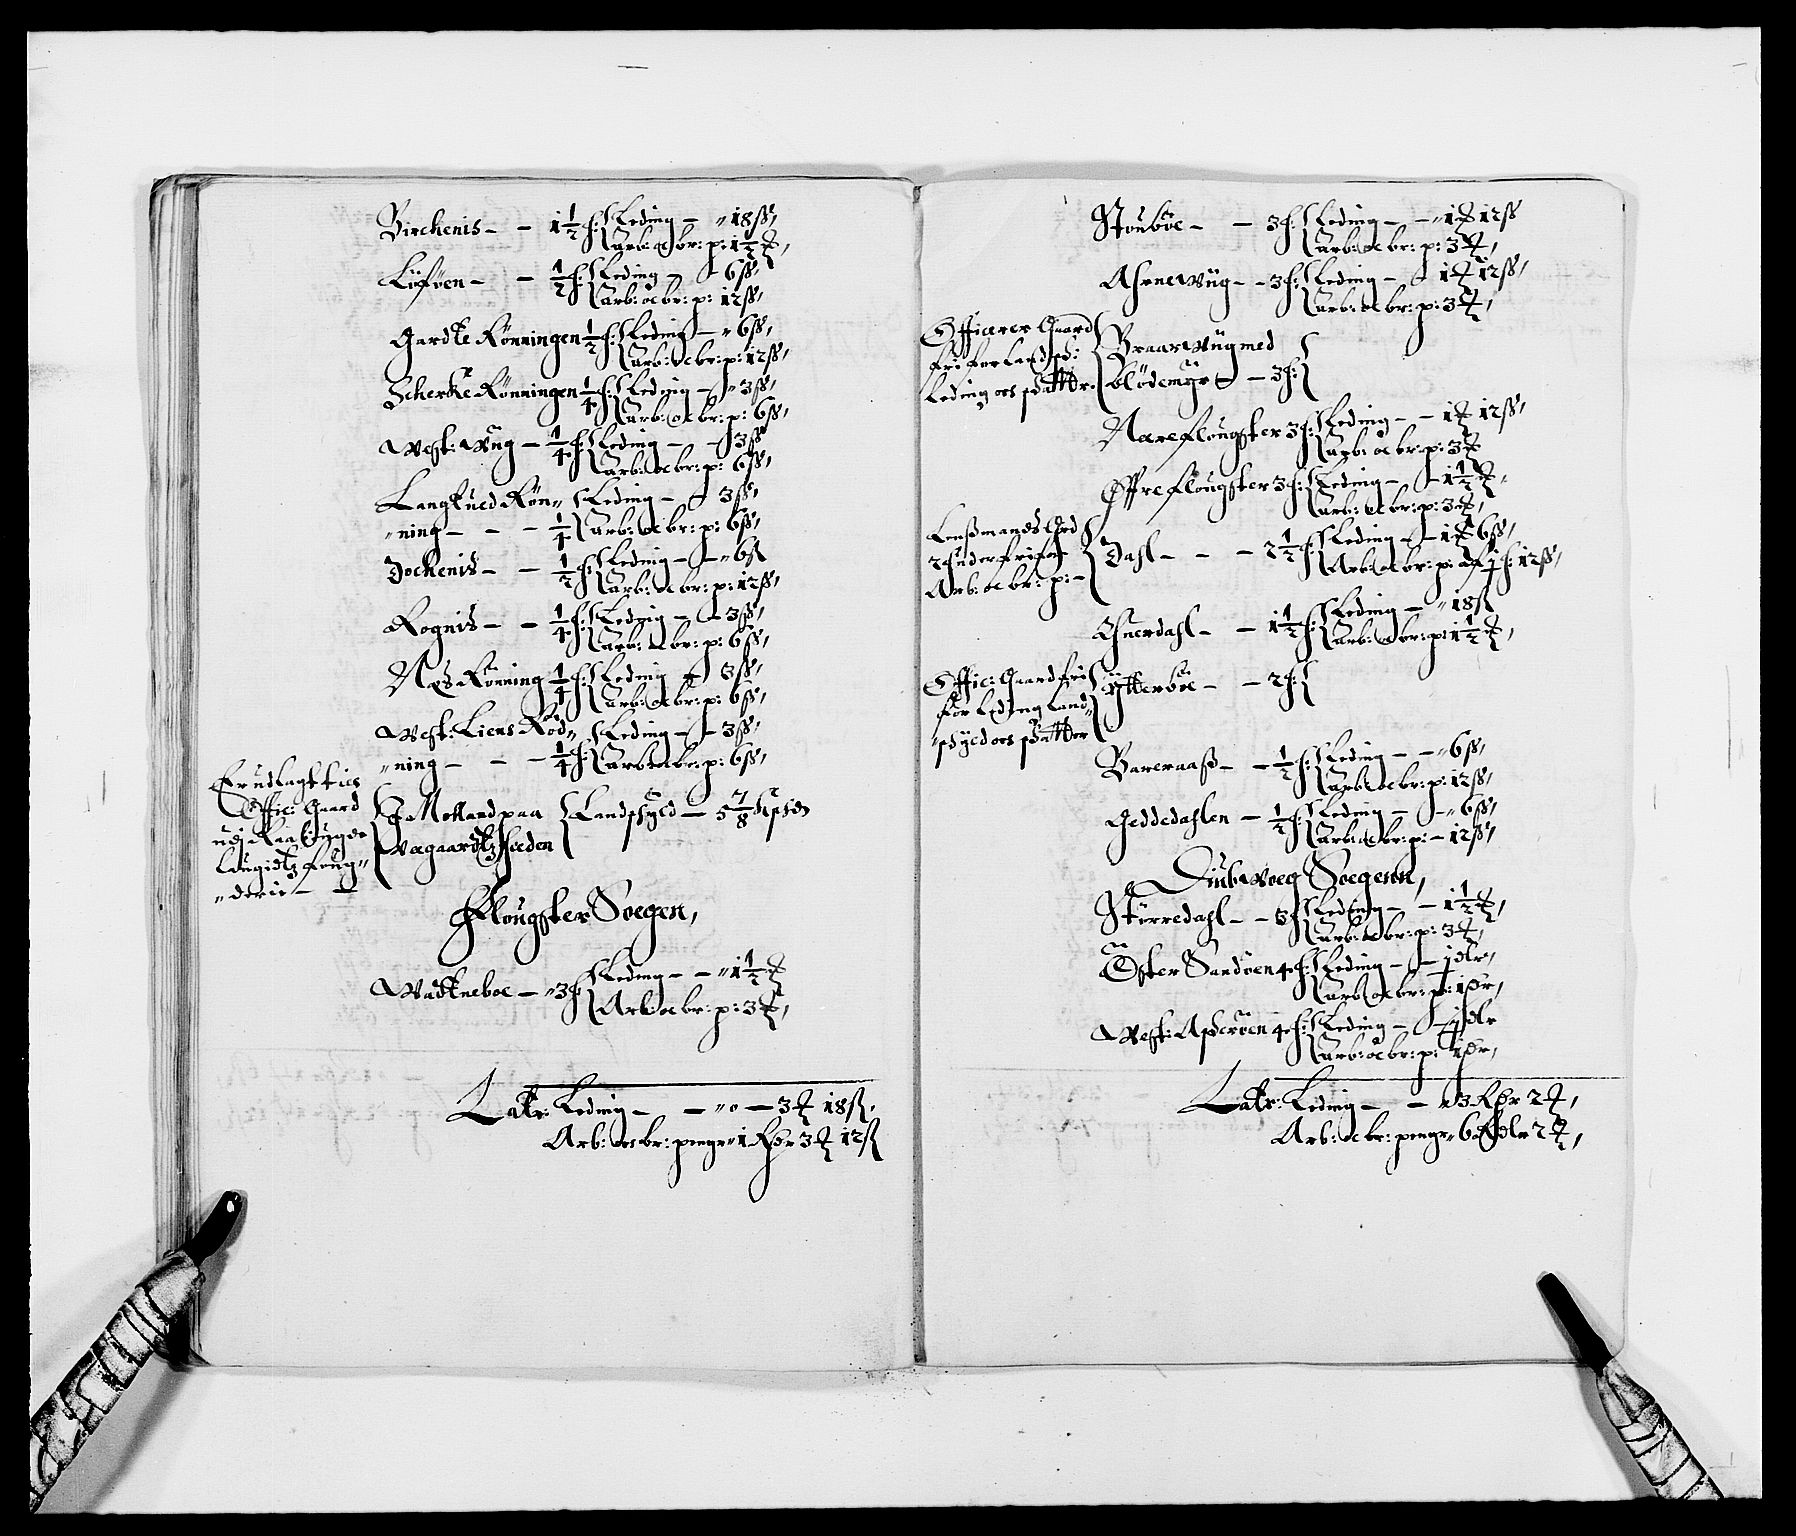 Birchenis - - 1½ h: Leding - " 18 ß,
arb: oc br: p: 1½ ₰,
Liföen - - ½ h: Leding - - 6 ß,
arb: oc br: p: 12 ß,
Gardte Rønningen ½ h: Leding - " 6 ß,
arb: oc br: p: 12 ß,
Rønningen ¼ h: Leding - " 3 ß,
arb: oc br: p: 6 ß,
West: Wüg - ¼ h: Leding - - 3 ß
arb: oc br: p: 6 ß,
Røn" Leding - - 3 ß,
"ning - - - ¼ arb: oc br: p: 6 ß,
Dochenis - - ½ h: Leding - - " 6 ß
arb: oc br: p: 12 ß,
Rognis - - ¼ h: Leding - - 3 ß,
arb: oc br: p: 6 ß,
Næs Rønning ¼ h: Leding - 3 ß,
arb: oc br: p: 6 ß,
West: Liens Røn" Leding - - 3 ß,
"ning - - - ¼ h: arb: oc br: p: 6 ß,
Er udlagt til
Offic: Gaard
udj Raabÿgde
laugidtz foug"
"derie - -
J Molland paa Landschyld - 5 7/8
Flougster Soegen,
Wadtneboe - " 3 h: Leding - - " 1½ ₰
Arb: oc br: p: 3 ₰,
Lat: Leding - - " " - 3 ₰ 18 ß,
Arb: oc br: penge " 1 Rdr 3 ₰ 12 ß
Stouböe - - 3 h: Leding - - " 1 ₰ 12 ß
arb: oc br: p: 3 ₰,
Ahrnewüg - - 3 h: Leding - - 1 ₰ 12 ß,
arb: oc br: p: 3 ₰,
Officerer Gaard
fri for Landsch:
Leding oc schatter
Braarwüg med
blödemÿr - - 3 h:
Næreflougster 3 h: Leding - - 1 ₰ 12 ß,
Arb: oc br: p: 3 ₰
Öffreflougster 3 h: Leding - - 1½ ₰,
Arb: oc br: p: 3 ₰,
Lenßmands Grd
Arb: oc br: p: -
Dahl - - - 2½ h: Leding - - 1 ₰ 6 ß,
Arb: oc br: p: af 12 ß,
- - 1½ h: Leding - " 18 ß
arb: oc br: p: 1½ ₰,
Offic: Gaard fri
for Leding Land"
"schyld oc schatter
ÿtterböe - - 2 h:
Bareraaß - - ½ h: Leding - - " 6 ß,
Arb: oc br: p: 12 ß,
Geddedahlen - ½ h: Leding - - " 6 ß,
Arb: oc br: p: - 12 ß,
Diubwoeg Soegenn,
Stÿrredahl - - 3 h: Leding - - 1½ ₰,
arb: oc br: p: 3 ₰,
Öster Sandöen 4 h: Leding - - ½ dlr,
arb: oc br: p: 1 dr,
West: Asderöen 4 h: Leding - - ½ dlr
arb: oc br: p: 1 dr,
Lat: Leding - - " 3 Rdr 2 ₰,
Arb: oc br: penge " 6 Rdlr 2 ₰,